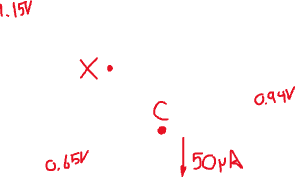 1.15V
X
0.94V
C
0.65V
50μA